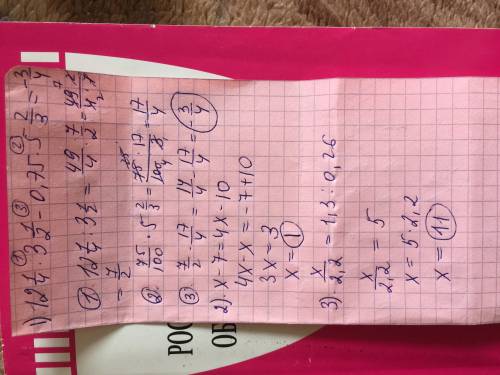 1) 12 1/4 : 3 1/2 - 0,75 · 5 2/3 = -3/4
① 12 1/4 : 3 1/2 = 49/4 · 2/7 = 49·2/4·7
= 7/2
②. 75/100 · 5 2/3 = 75·17/100·3 = 17/4
③ 7/2 - 17/4 = 14/4 - 17/4 = -3/4
2). x - 7 = 4x - 10
4x - x = -7 + 10
3x = 3
x = 1
3) x/2,2 = 1,3 : 0,26
x/2,2 = 5
x = 5 · 2,2
x = 11
РОС
ОБ